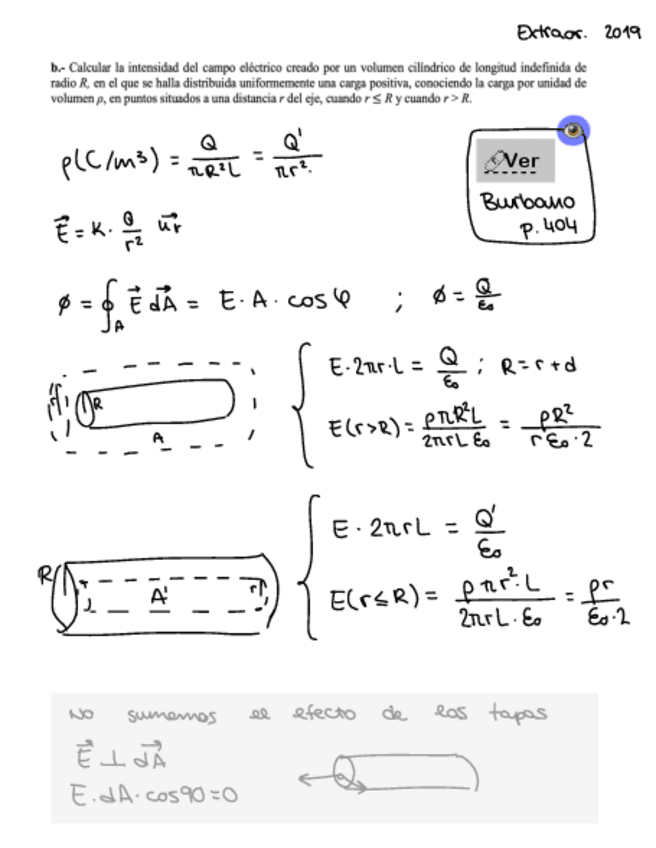 Extraor. 2019
b.- Calcular la intensidad del campo eléctrico creado por un volumen cilíndrico de longitud indefinida de
radio R, en el que se halla distribuida uniformemente una carga positiva, conociendo la carga por unidad de
volumen ρ, en puntos situados a una distancia r del eje, cuando r ≤ R y cuando r > R.
ρ(C/m³) = Q/πR²L = Q'/πr².
Ver
Burbano
p. 404
E⃗ = K · Q/r² u⃗r
ϕ = ∮_A E⃗ dA⃗ = E · A · cos φ ; ϕ = Q/ε₀
E · 2πr · L = Q/ε₀ ; R = r + d
R
A
E(r>R) = ρπR²L/2πrL ε₀ = ρR²/rε₀·2
E · 2πrL = Q'/ε₀
R
r
A'
r
E(r≤R) = ρπr²·L/2πrL·ε₀ = ρr/ε₀·2
No sumamos el efecto de las tapas
E⃗ ⊥ dA⃗
E · dA · cos90 = 0